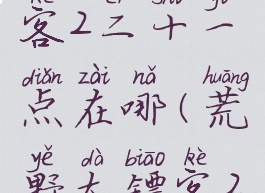 客2二十一
diǎn zài nǎ huāng
点在哪(荒
yě dà biāo kè
野大镖客2